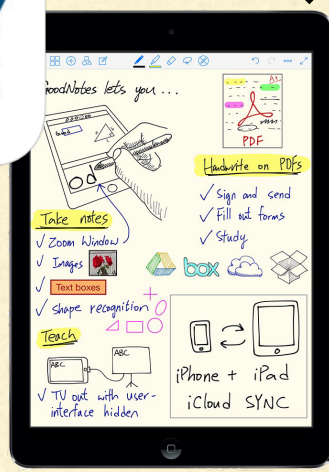 GoodNotes lets you ...
A+
PDF
Handwrite on PDFs
✓ Sign and send
✓ Fill out forms
✓ Study
Take notes
✓ Zoom Window
✓ Images
✓ Text boxes
✓ shape recognition
box
Teach
ABC
ABC
✓ TV out with user-
interface hidden
iPhone + iPad
iCloud SYNC